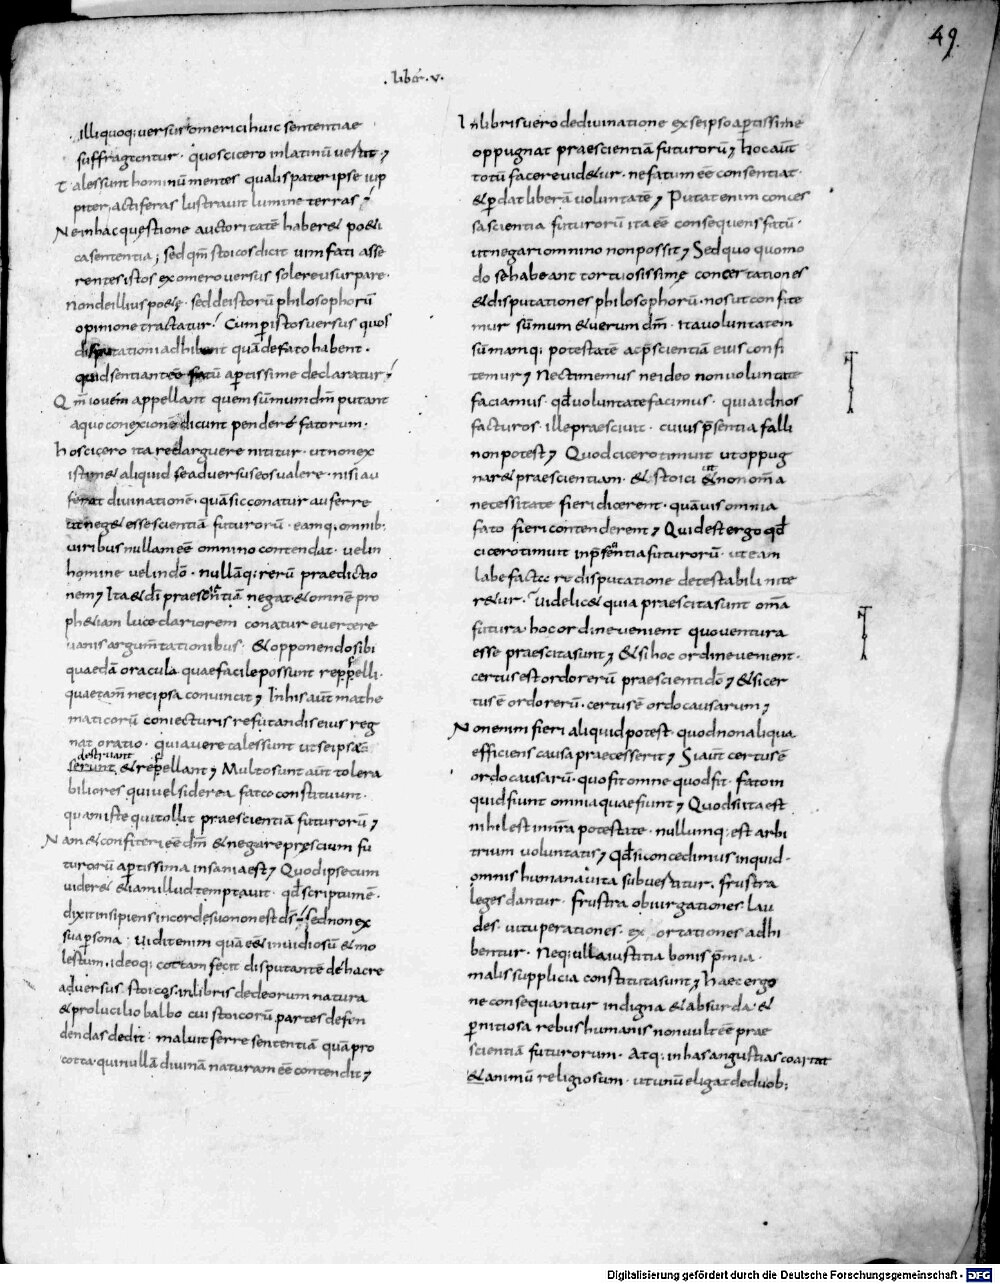 49.
. liber . v .
Illi quoq; versus omerici huic sententiae
suffragentur . quos cicero in latinũ vertit ;
Tales sunt hominũ mentes qualis pater ipse iup
piter , actiferas lustravit lumine terras ;
Ne in hac quęstione auctoritatẽ haber& po&i
ca sententia ; sed qm̃ stoicos dicit vim fati asse
rentes istos ex omero versus solere usurpare .
Non de illius po&ę . sed de istorũ philosophorũ
opinione tractatur ; Cum ꝑ istos versus quos
disputationi adhibent quã de fato habent .
quid sentiant eẽ fatũ aꝑtissime declaratur ;
Qm̃ iovem appellant quem sũmum dm̃ putant
a quo conexionẽ dicunt penderé fatorum .
Hos cicero ita redarguere nititur . ut non ex
istim& aliquid se adversus eos valere . nisi au
ferat divinationẽ . quã sic conatur auferre
ut neg& esse scientiã futurorũ . eamq; omnib;
viribus nullam eẽ omnino contendat . vel in
homine vel in dõ . nullãq; rerũ praedictio
nem ; Ita & dĩ praescientiã negat & omnẽ pro
ph&iam luce clariorem conatur evertere
vanis argum̃tationibus ; & opponendo sibi
quaedã oracula quae facile possunt reppelli .
quae tam̃ nec ipsa convincit ; In his aut̃ mathe
maticorũ coniecturis refutandis eius reg
nat oratio . quia vere tales sunt ut se ipsae
destruant
serunt & repellant ; Multo sunt aut̃ tolera
biliores qui vel siderea fata constituunt .
quam iste qui tollit praescientiã futurorũ ;
Nam & confiteri eẽ dm̃ & negare pręscium fu
turorũ aꝑtissima insania est ; Quod ipse cum
vider& & iam illud temptavit . qd̃ scriptum ẽ .
dixit insipiens in corde suo non est ds̃ ; sed non ex
sua ꝑsona ; Vidit enim quã eẽ & invidiosũ & mo
lestum . ideoq; cottam fecit disputantẽ de hac re
adversus . stoicos . in libris de deorum natura
& pro lucilio balbo cui stoicorũ partes defen
dendas dedit . maluit ferre sententiã quã pro
cotta qui nullã divinã naturam eẽ contendit ;
In libris vero de divinatione ex se ipso aꝑtissime
oppugnat praescientiã futurorũ ; Hoc aut̃
totũ facere vid&ur . ne fatum eẽ consentiat .
& ꝑdat liberã voluntatẽ ; Putat enim conces
sa scientia futurorũ ita eẽ consequens fatũ .
ut negari omnino non possit ; Sed quo quomo
do se habeant tortuosissimę concertationes
& disputationes philosophorũ . nos ut confite
mur sũmum & verum dm̃ . ita voluntatem
sũmamq; potestatẽ ac p̃scientiã eius confi
temur ; Nec timemus ne ideo non voluntate
faciamus . qd̃ voluntate facimus . quia id nos
facturos . ille praescivit . cuius p̃sentia falli
non potest ; Quod cicero timuit ut oppug
nar& praescientiam . & stoici ut & non om̃a
necessitate fieri dicerent . quãvis omnia
fato fieri contenderent ; Quid est ergo qd̃
cicero timuit in p̃sentia futurorũ . ut eam
labefactare disputatione detestabili nite
r&ur . videlic& quia praescita sunt om̃a
futura . hoc ordine venient quo ventura
esse praescita sunt ; & si hoc ordine venient .
certus est ordo rerũ praescienti dõ ; & si cer
tus ẽ ordo rerũ . certus ẽ ordo causarum ;
Non enim fieri aliquid potest quod non aliqua
efficiens causa praecesserit ; Si aut̃ certus ẽ
ordo causarũ . quo fit omne quod fit . fato in
quid fiunt omnia quae fiunt ; Quod si ita est
nihil est in nr̃a potestate . nullumq; est arbi
trium voluntatis ; qd̃ si concedimus inquid .
omnis humana vita subvertitur . frustra
leges dantur . frustra obiurgationes lau
des . vituperationes . ex ortationes adhi
bentur . Neq; ulla iustitia bonis p̃mia .
malis supplicia constituta sunt ; Haec ergo
ne consequantur indigna & absurda . &
ꝑnitiosa rebus humanis non vult eẽ prae
scientiã futurorum . Atq; in has angustias coartat
& animũ religiosum . ut unũ eligat de duob;
Digitalisierung gefördert durch die Deutsche Forschungsgemeinschaft - DFG